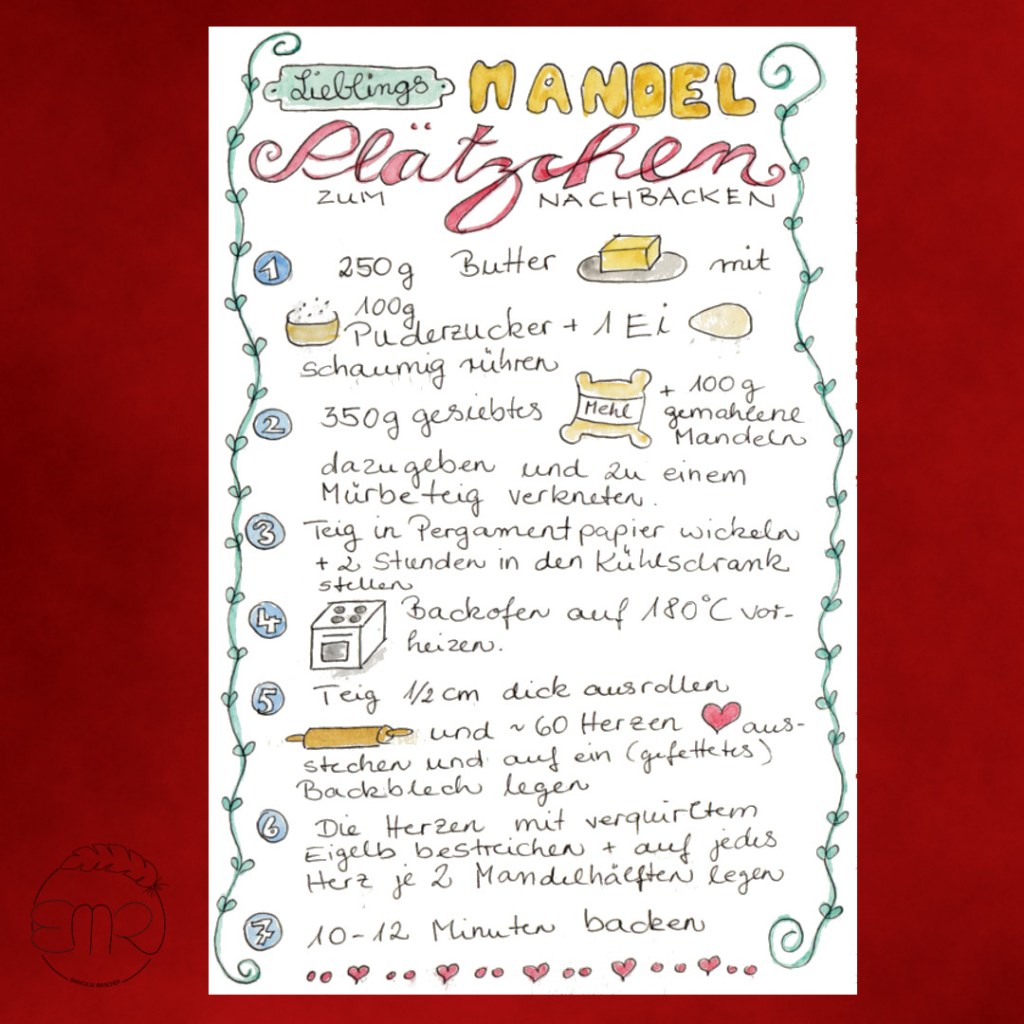 Lieblings MANDEL
Plätzchen
ZUM NACHBACKEN
1 250g Butter mit
100g
Puderzucker + 1 Ei
schaumig rühren
2 350g gesiebtes Mehl + 100g
gemahlene
Mandeln
dazugeben und zu einem
Mürbeteig verkneten.
3 Teig in Pergamentpapier wickeln
+ 2 Stunden in den Kühlschrank
stellen
4 Backofen auf 180°C vor-
heizen.
5 Teig 1/2 cm dick ausrollen
und ~60 Herzen aus-
stechen und auf ein (gefettetes)
Backblech legen
6 Die Herzen mit verquirltem
Eigelb bestreichen + auf jedes
Herz je 2 Mandelhälften legen
7 10-12 Minuten backen
EMR